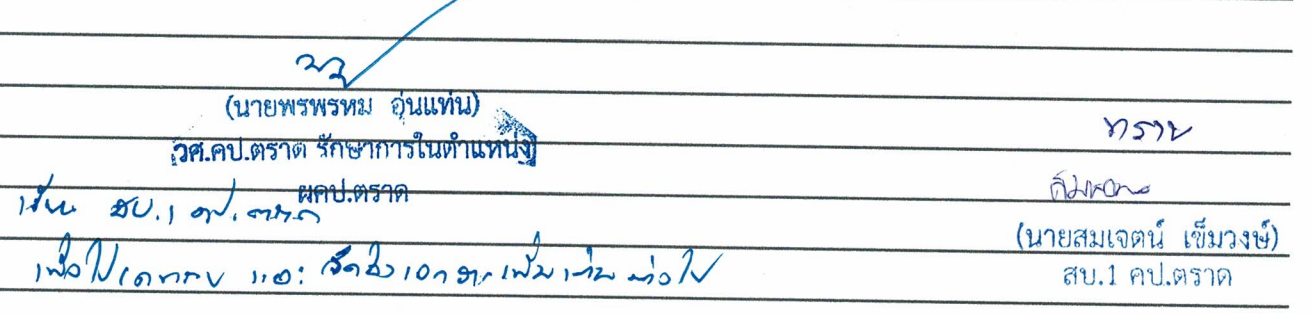 (นายพรพรหม อุ่นแท่น)
วศ.คป.ตราด รักษาการในตำแหน่ง
ผคป.ตราด
เรียน สบ.1 คป.ตราด
เพื่อโปรดทราบ และ จัดส่งเอกสารเพิ่มเติม ต่อไป
ทราบ
(นายสมเจตน์ เข็มวงษ์)
สบ.1 คป.ตราด